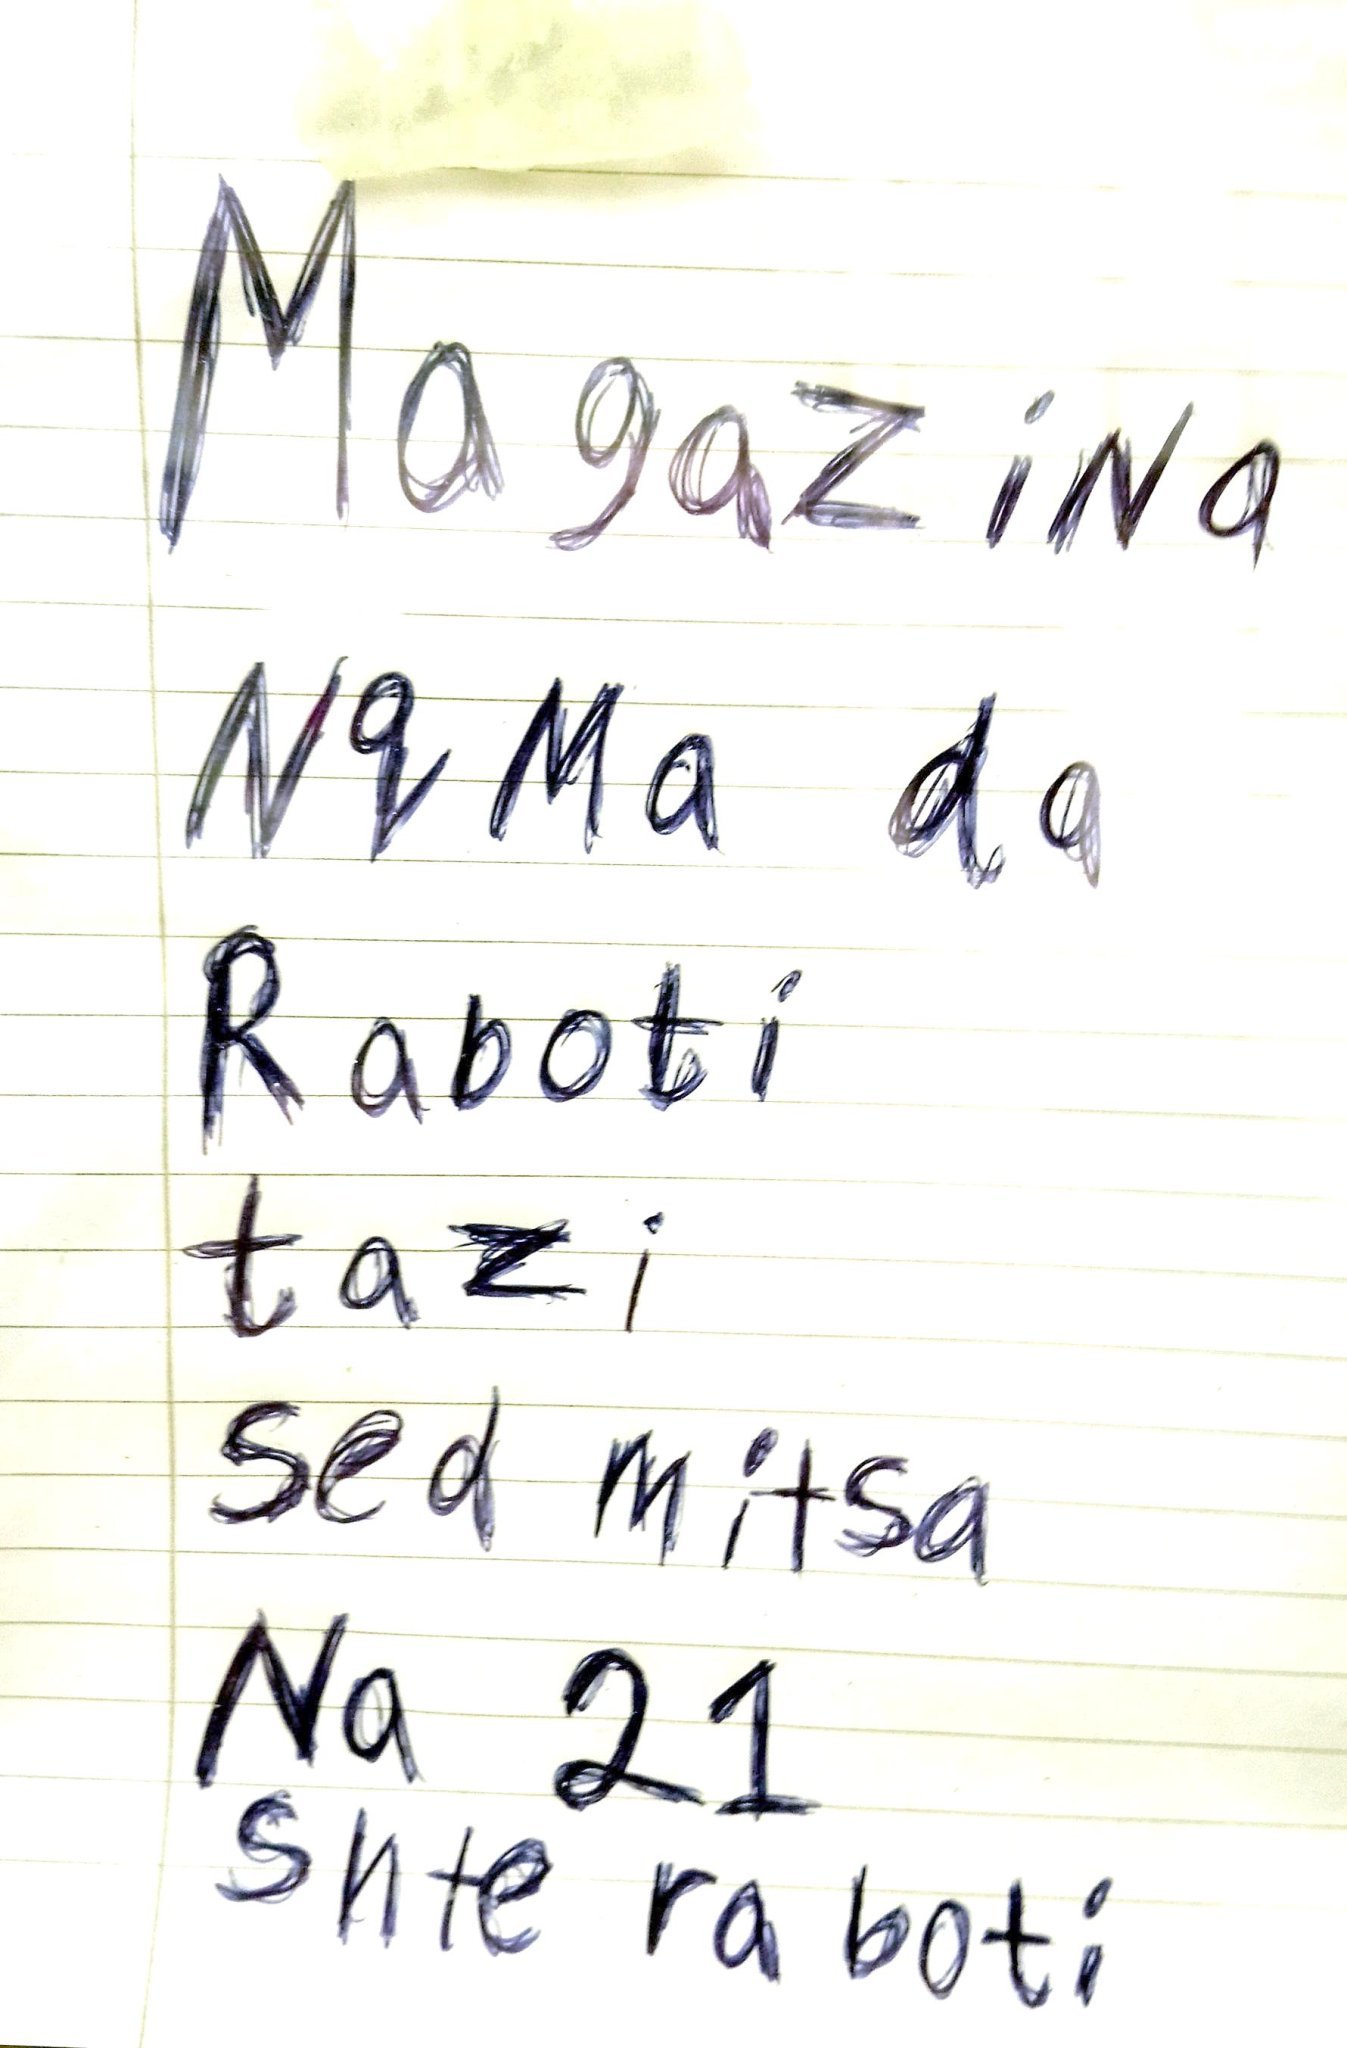 Magazina
Nqma da
Raboti
tazi
sedmitsa
Na 21
shte raboti